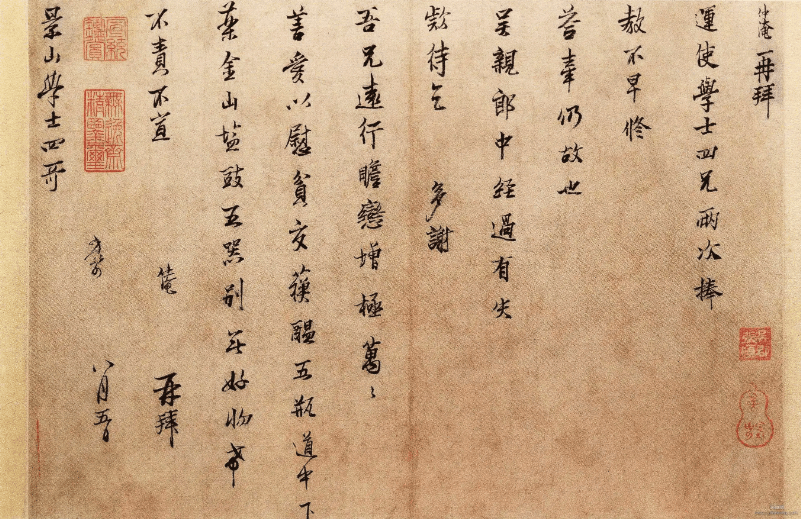 仲淹 再拜
運使學士四兄兩次捧
教不早修
答牽仍故也
吳親郎中經過有失
欵待乞 多謝
吾兄遠行瞻戀增極萬〻
善愛以慰貧交蘇醞五瓶道中下
藥金山塩豉五器别無好物希
不責不宣 淹 再拜
景山學士四哥
八月五日